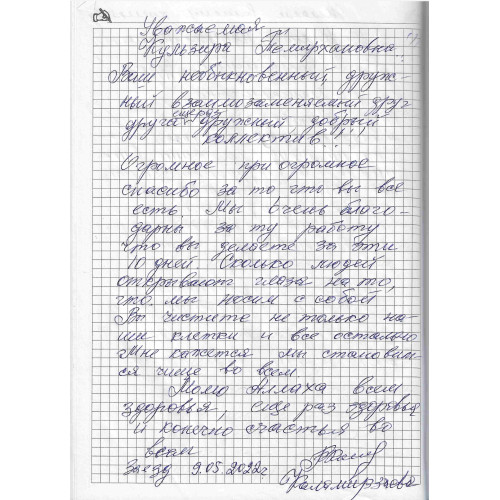 Уважаемая
Кульзира Темирхановна
Ваш необыкновенный друж-
ный взаимозаменяемый друг
друга дружный добрый
коллектив!!!
Огромное при огромное
спасибо за то что вы все
есть. Мы очень благо-
дарны за ту работу
что вы делаете за эти
10 дней. Сколько людей
открывают глаза на то,
что мы носим с собой
Вы чистите не только на-
ши клетки и все остальное
Мне кажется мы становим-
ся чище во всем.
Молю Аллаха всем
здоровья, еще раз здоровья
и конечно счастья во
всем
Заезд 9.05.2022г.